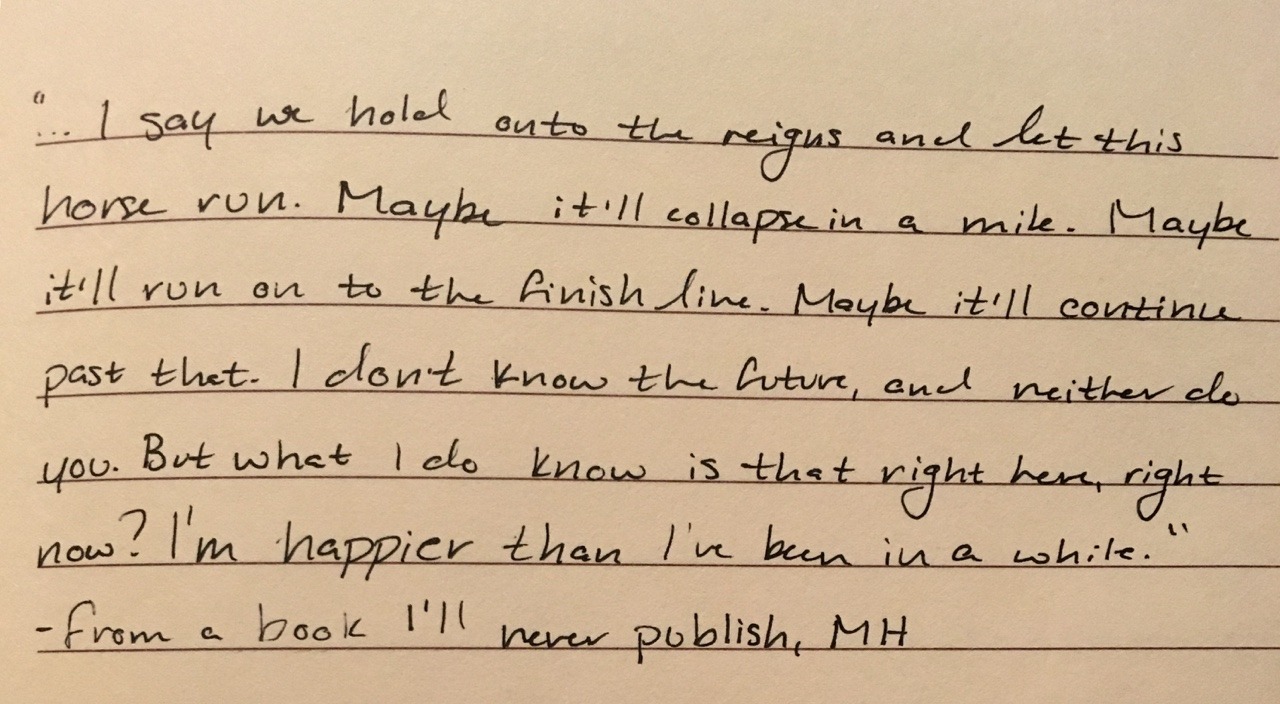 "... I say we hold onto the reigns and let this
horse run. Maybe it'll collapse in a mile. Maybe
it'll run on to the finish line. Maybe it'll continue
past that. I don't know the future, and neither do
you. But what I do know is that right here, right
now? I'm happier than I've been in a while."
-from a book I'll never publish, MH